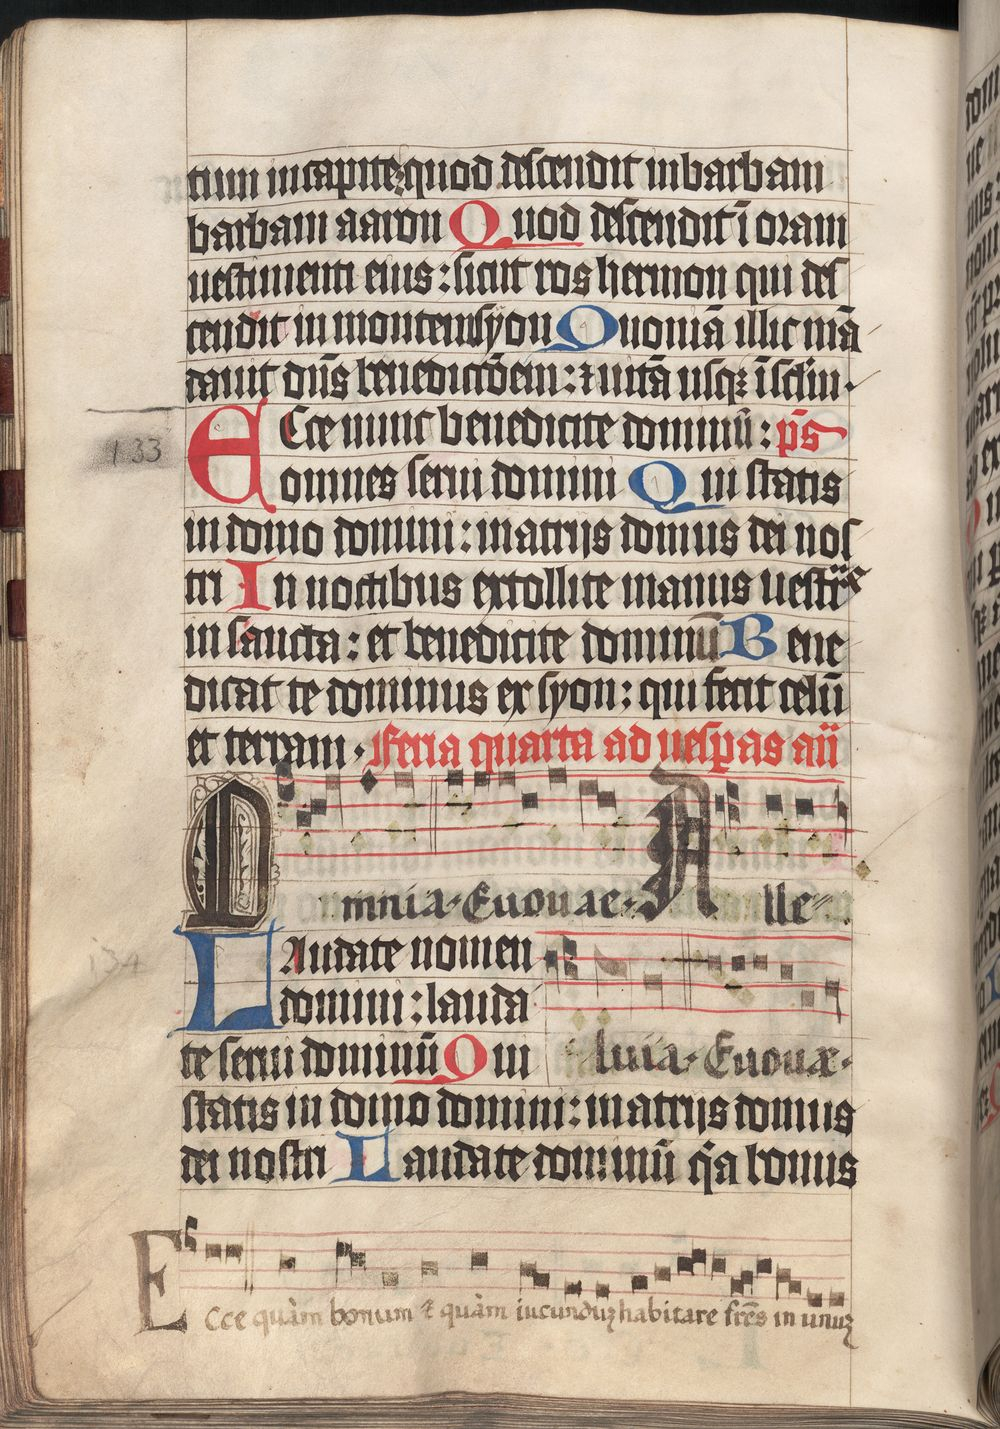 tum in capite: quod descendit in barbam
barbam aaron Quod descendit ī oram
uestimenti eius: sicut ros hermon qui des
cendit in montem syon Quoniā illic mā
dauit dn̄s benedictōem: ⁊ uitā usqꝫ ī sclm̄.
133
ECce nunc benedicite dominū: ps̄
omnes serui domini Qui statis
in domo domini: in atrijs domus dei nos
tri In noctibus extollite manus uestr̄as
in sancta: et benedicite dominū Bene
dicat te dominus ex syon: qui fecit celū
et terram. Feria quarta ad uesp̄as an̄
Omnia. Euouae. Alle
134
LAudate nomen
domini: lauda
te serui dominū Qui
luia. Euouæ.
statis in domo domini: in atrijs domus
dei nostri Laudate dominū q̄a bonus
ECce quàm bonum & quàm iucunduꝫ habitare frēs in unuꝫ